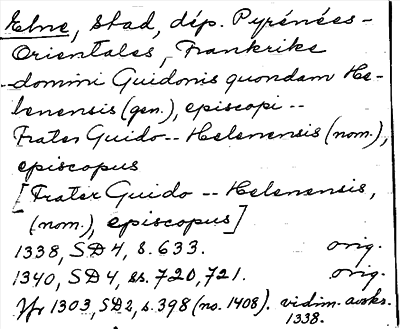 Elne, stad, dép. Pyrénées-
Orientales, Frankrike
--domini Guidonis quondam He-
lenensis (gen.), episcopi --
Frater Guido -- Helenensis (nom.),
episcopus
[Frater Guido -- Helenensis,
(nom.), episcopus]
1338, SD4, s. 633. orig.
1340, SD4, ss. 720, 721. orig.
Jfr 1303, SD2, s. 398 (no. 1408). vidim.
1338.